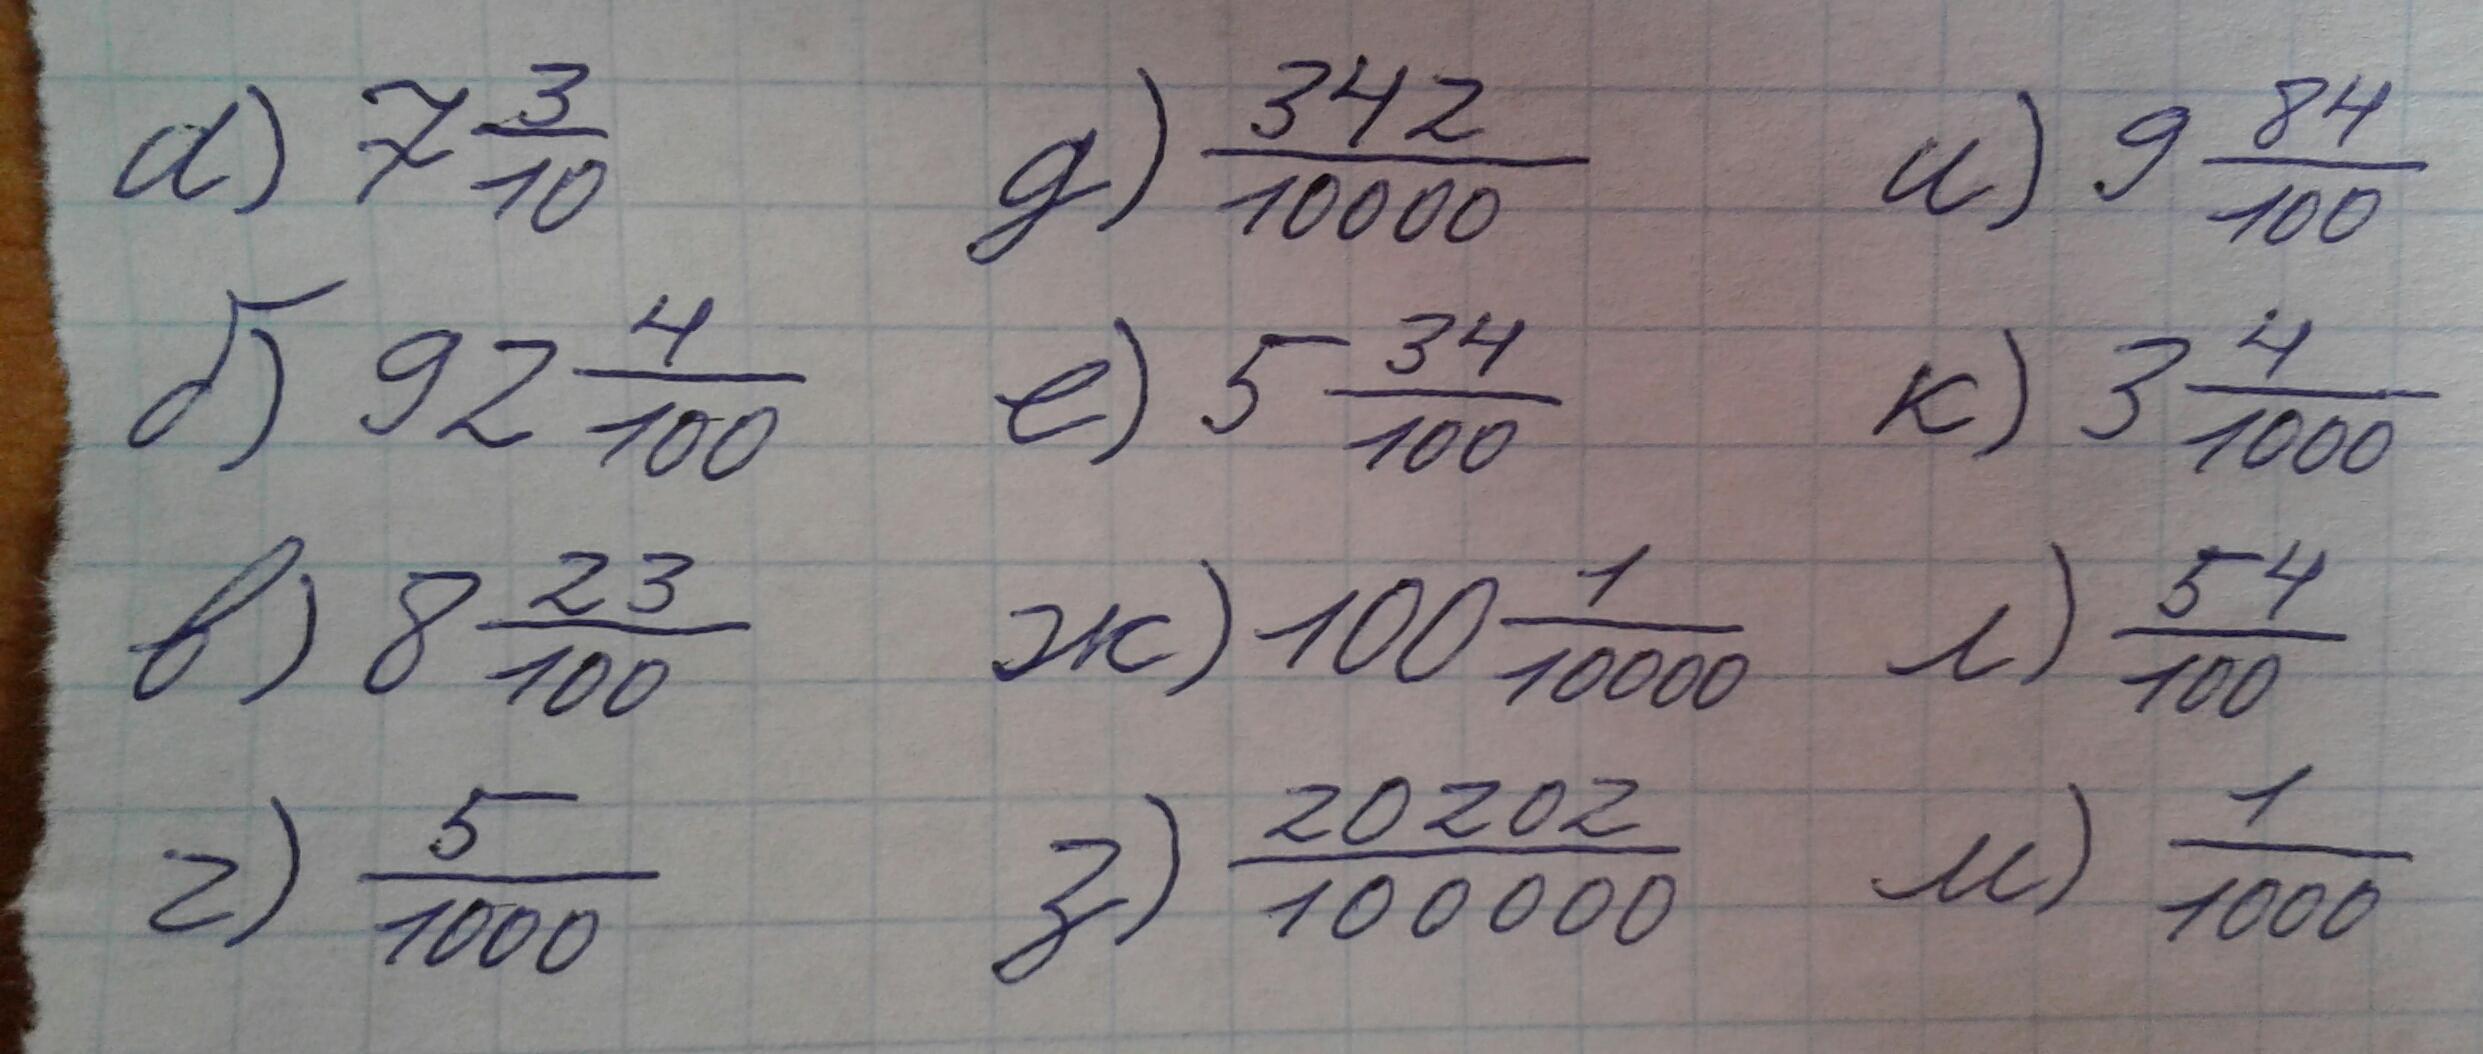 а) 7 3/10
б) 92 4/100
в) 8 23/100
г) 5/1000
д) 342/10000
е) 5 34/100
ж) 100 1/10000
з) 20202/100000
и) 9 84/100
к) 3 4/1000
л) 54/100
м) 1/1000